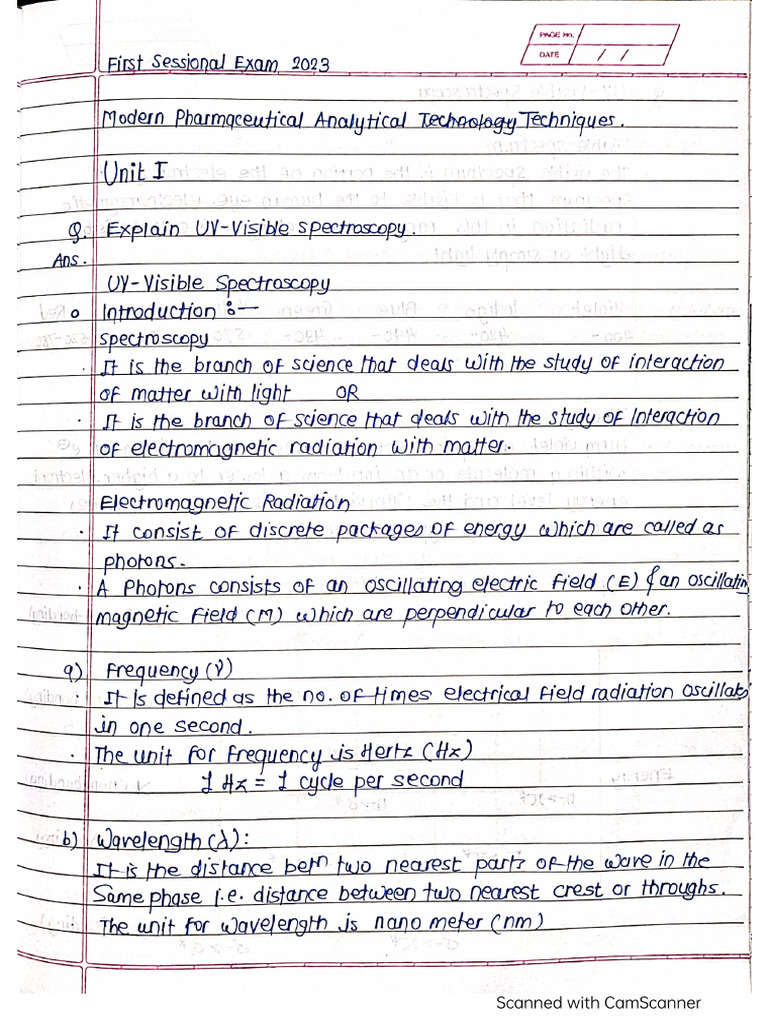 PAGE No.
DATE / /
First Sessional Exam 2023
Modern Pharmaceutical Analytical Technology Techniques.
Unit I
Q. Explain UV-Visible spectroscopy.
Ans.
UV-Visible Spectroscopy
o Introduction :-
spectroscopy
· It is the branch of science that deals with the study of interaction
of matter with light OR
· It is the branch of science that deals with the study of Interaction
of electromagnetic radiation with matter.
Electromagnetic Radiation
· It consist of discrete packages of energy which are called as
photons.
· A Photons consists of an oscillating electric field (E) & an oscillating
magnetic field (M) which are perpendicular to each other.
a) Frequency (ν)
· It is defined as the no. of times electrical field radiation oscillats
in one second.
· The unit for frequency is Hertz (Hz)
1 Hz = 1 cycle per second
b) Wavelength (λ):
It is the distance betn two nearest parts of the wave in the
Same phase i.e. distance between two nearest crest or throughs.
· The unit for wavelength is nano meter (nm)
Scanned with CamScanner